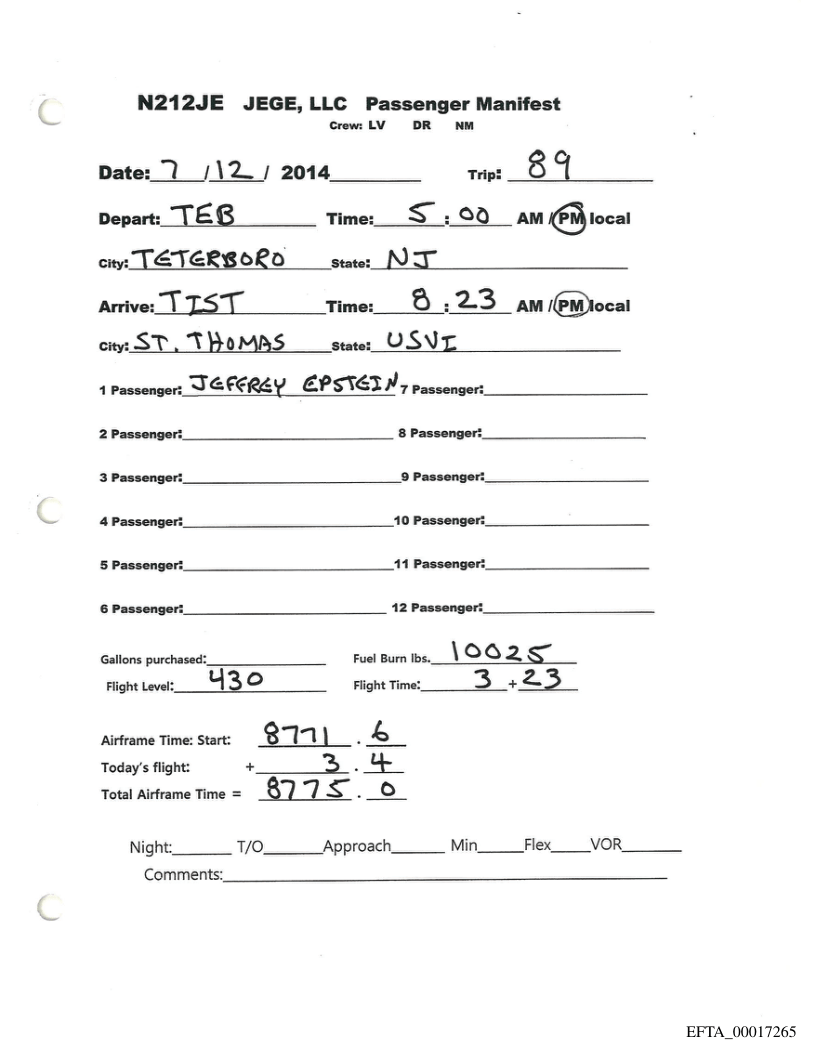 N212JE JEGE, LLC Passenger Manifest
Crew: LV DR NM
Date: 7 / 12 / 2014 Trip: 89
Depart: TEB Time: 5 : 00 AM / PM local
City: TETERBORO State: NJ
Arrive: TIST Time: 8 : 23 AM / PM local
City: ST. THOMAS State: USVI
1 Passenger: JEFFREY EPSTEIN 7 Passenger:
2 Passenger: 8 Passenger:
3 Passenger: 9 Passenger:
4 Passenger: 10 Passenger:
5 Passenger: 11 Passenger:
6 Passenger: 12 Passenger:
Gallons purchased: Fuel Burn lbs. 10025
Flight Level: 430 Flight Time: 3 + 23
Airframe Time: Start: 8771 . 6
Today's flight: + 3 . 4
Total Airframe Time = 8775 . 0
Night: T/O Approach Min Flex VOR
Comments:
EFTA_00017265